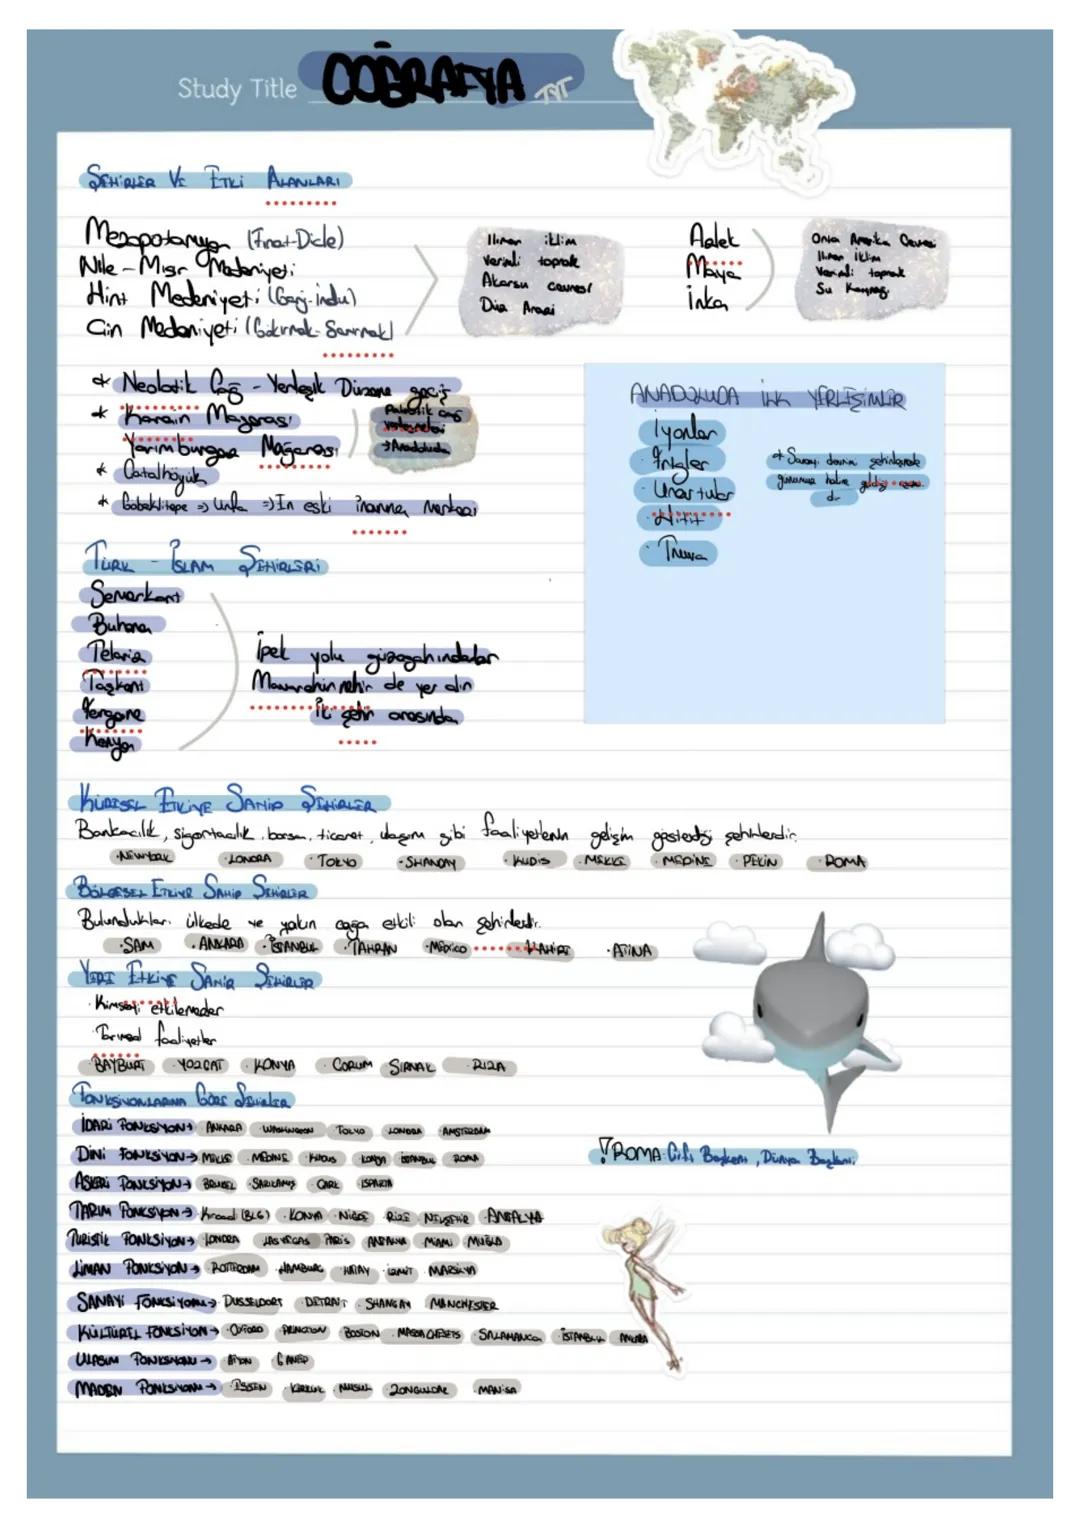 Study Title COĞRAFYA TYT
ŞEHİRLER VE ETKİ ALANLARI
Mezopotamya (Fırat-Dicle)
Nile - Mısır Medeniyeti
Hint Medeniyeti (Ganj-indu)
Çin Medeniyeti (Gökırmak-Sarıırmak)
Ilıman iklim
Verimli toprak
Akarsu çevresi
Düz Arazi
Aztek
Maya
İnka
Orta Amerika Çevresi
Ilıman İklim
Verimli toprak
Su Kaynağı
* Neolotik Çağ - Yerleşik Düzene geçiş
* Karain Mağarası
Yarımburgaz Mağarası
Paleotik çağ
yerleşmeleri
→ Anadoluda
* Çatalhöyük
* Göbeklitepe => Urfa => En eski inanma Merkezi
ANADOLUDA İLK YERLEŞİMLER
İyonlar
· Frigler
· Urartular
· Hitit
· Truva
* Sanayi devrimi şehirlerde
günümüz haline geldiği
dir
TÜRK - İSLAM ŞEHİRLERİ
Semerkant
Buhara
Telaria
Taşkent
Fergane
Konya
İpek yolu güzergahındalar
Maverahinnehir de yer alır
İki şehir arasında
KÜRESEL ETKİYE SAHİP ŞEHİRLER
Bankacılık, sigortacılık, borsa, ticaret, ulaşım gibi faaliyetlerin gelişim gösterdiği şehirlerdir.
· NEWYORK · LONDRA · TOKYO · SHANGAY · KUDÜS · MEKKE · MEDİNE · PEKİN · ROMA
BÖLGESEL ETKİYE SAHİP ŞEHİRLER
Bulundukları ülkede ve yakın çağa etkili olan şehirlerdir.
· ŞAM · ANKARA · İSTANBUL · TAHRAN · MEXICO · KAHİRE · ATİNA
YEREL ETKİYE SAHİP ŞEHİRLER
· Kimseyi etkilemeder
· Tarımsal faaliyetler
· BAYBURT · YOZGAT · KONYA · ÇORUM ŞIRNAK · RİZA
FONKSİYONLARINA GÖRE ŞEHİRLER
İDARİ FONKSİYON → ANKARA · WASHINGTON TOKYO LONDRA AMSTERDAM
DİNİ FONKSİYON → MEKKE · MEDİNE · KUDÜS KONYA İSTANBUL ROMA
ASKERİ FONKSİYON → BRÜKSEL · SARIKAMIŞ ISPARTA
TARIM FONKSİYON → · KONYA · NİĞDE RİZE NEVŞEHİR · ANTALYA
TURİSTİK FONKSİYON → LONDRA LAS VEGAS PARİS ANTALYA MİAMİ MUĞLA
LİMAN FONKSİYON → ROTTERDAM · HAMBURG · HATAY · İZMİT · MARSİLYA
SANAYİ FONKSİYONU → DUSSELDORF · DETRAIT · SHANGAY MANCHESTER
KÜLTÜREL FONKSİYON → OXFORD PRINCTION BOSTON · MASSACHESETS · SALAMANCA · İSTANBUL ANKARA
ULAŞIM FONKSİYONU → AFYON
MADEN FONKSİYONU → · ESSEN · KERKÜK · MUSUL · ZONGULDAK · MANİSA
! ROMA: Çift Başkent, Dünya Başkenti